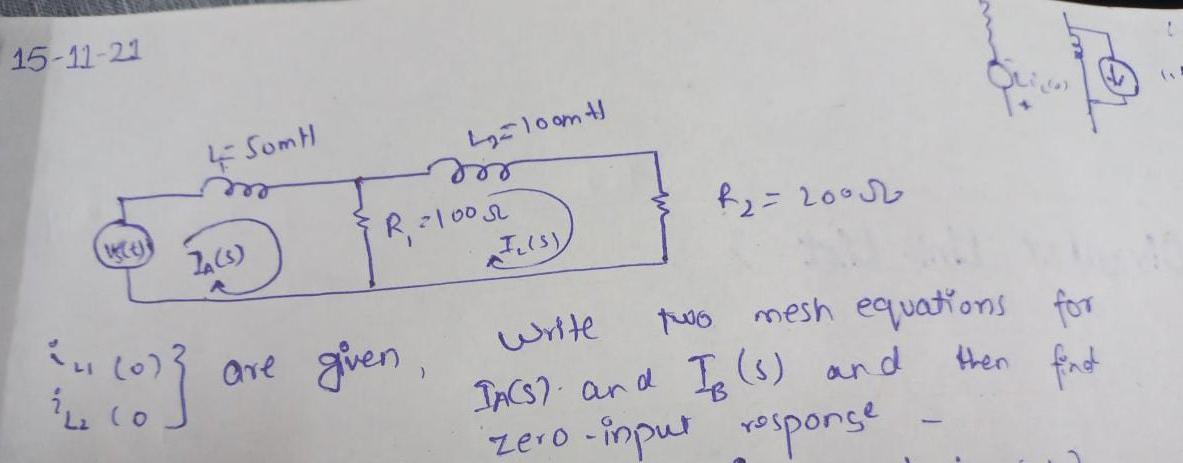 15-11-21
Li(0)
+
L₁=50mH
L₂=100mH
Vs(t)
I_A(s)
R₁=100Ω
I_L(s)
R₂=200Ω
i_L1(0)} are given,
i_L2(0
Write two mesh equations for
I_A(s). and I_B(s) and then find
zero-input response -